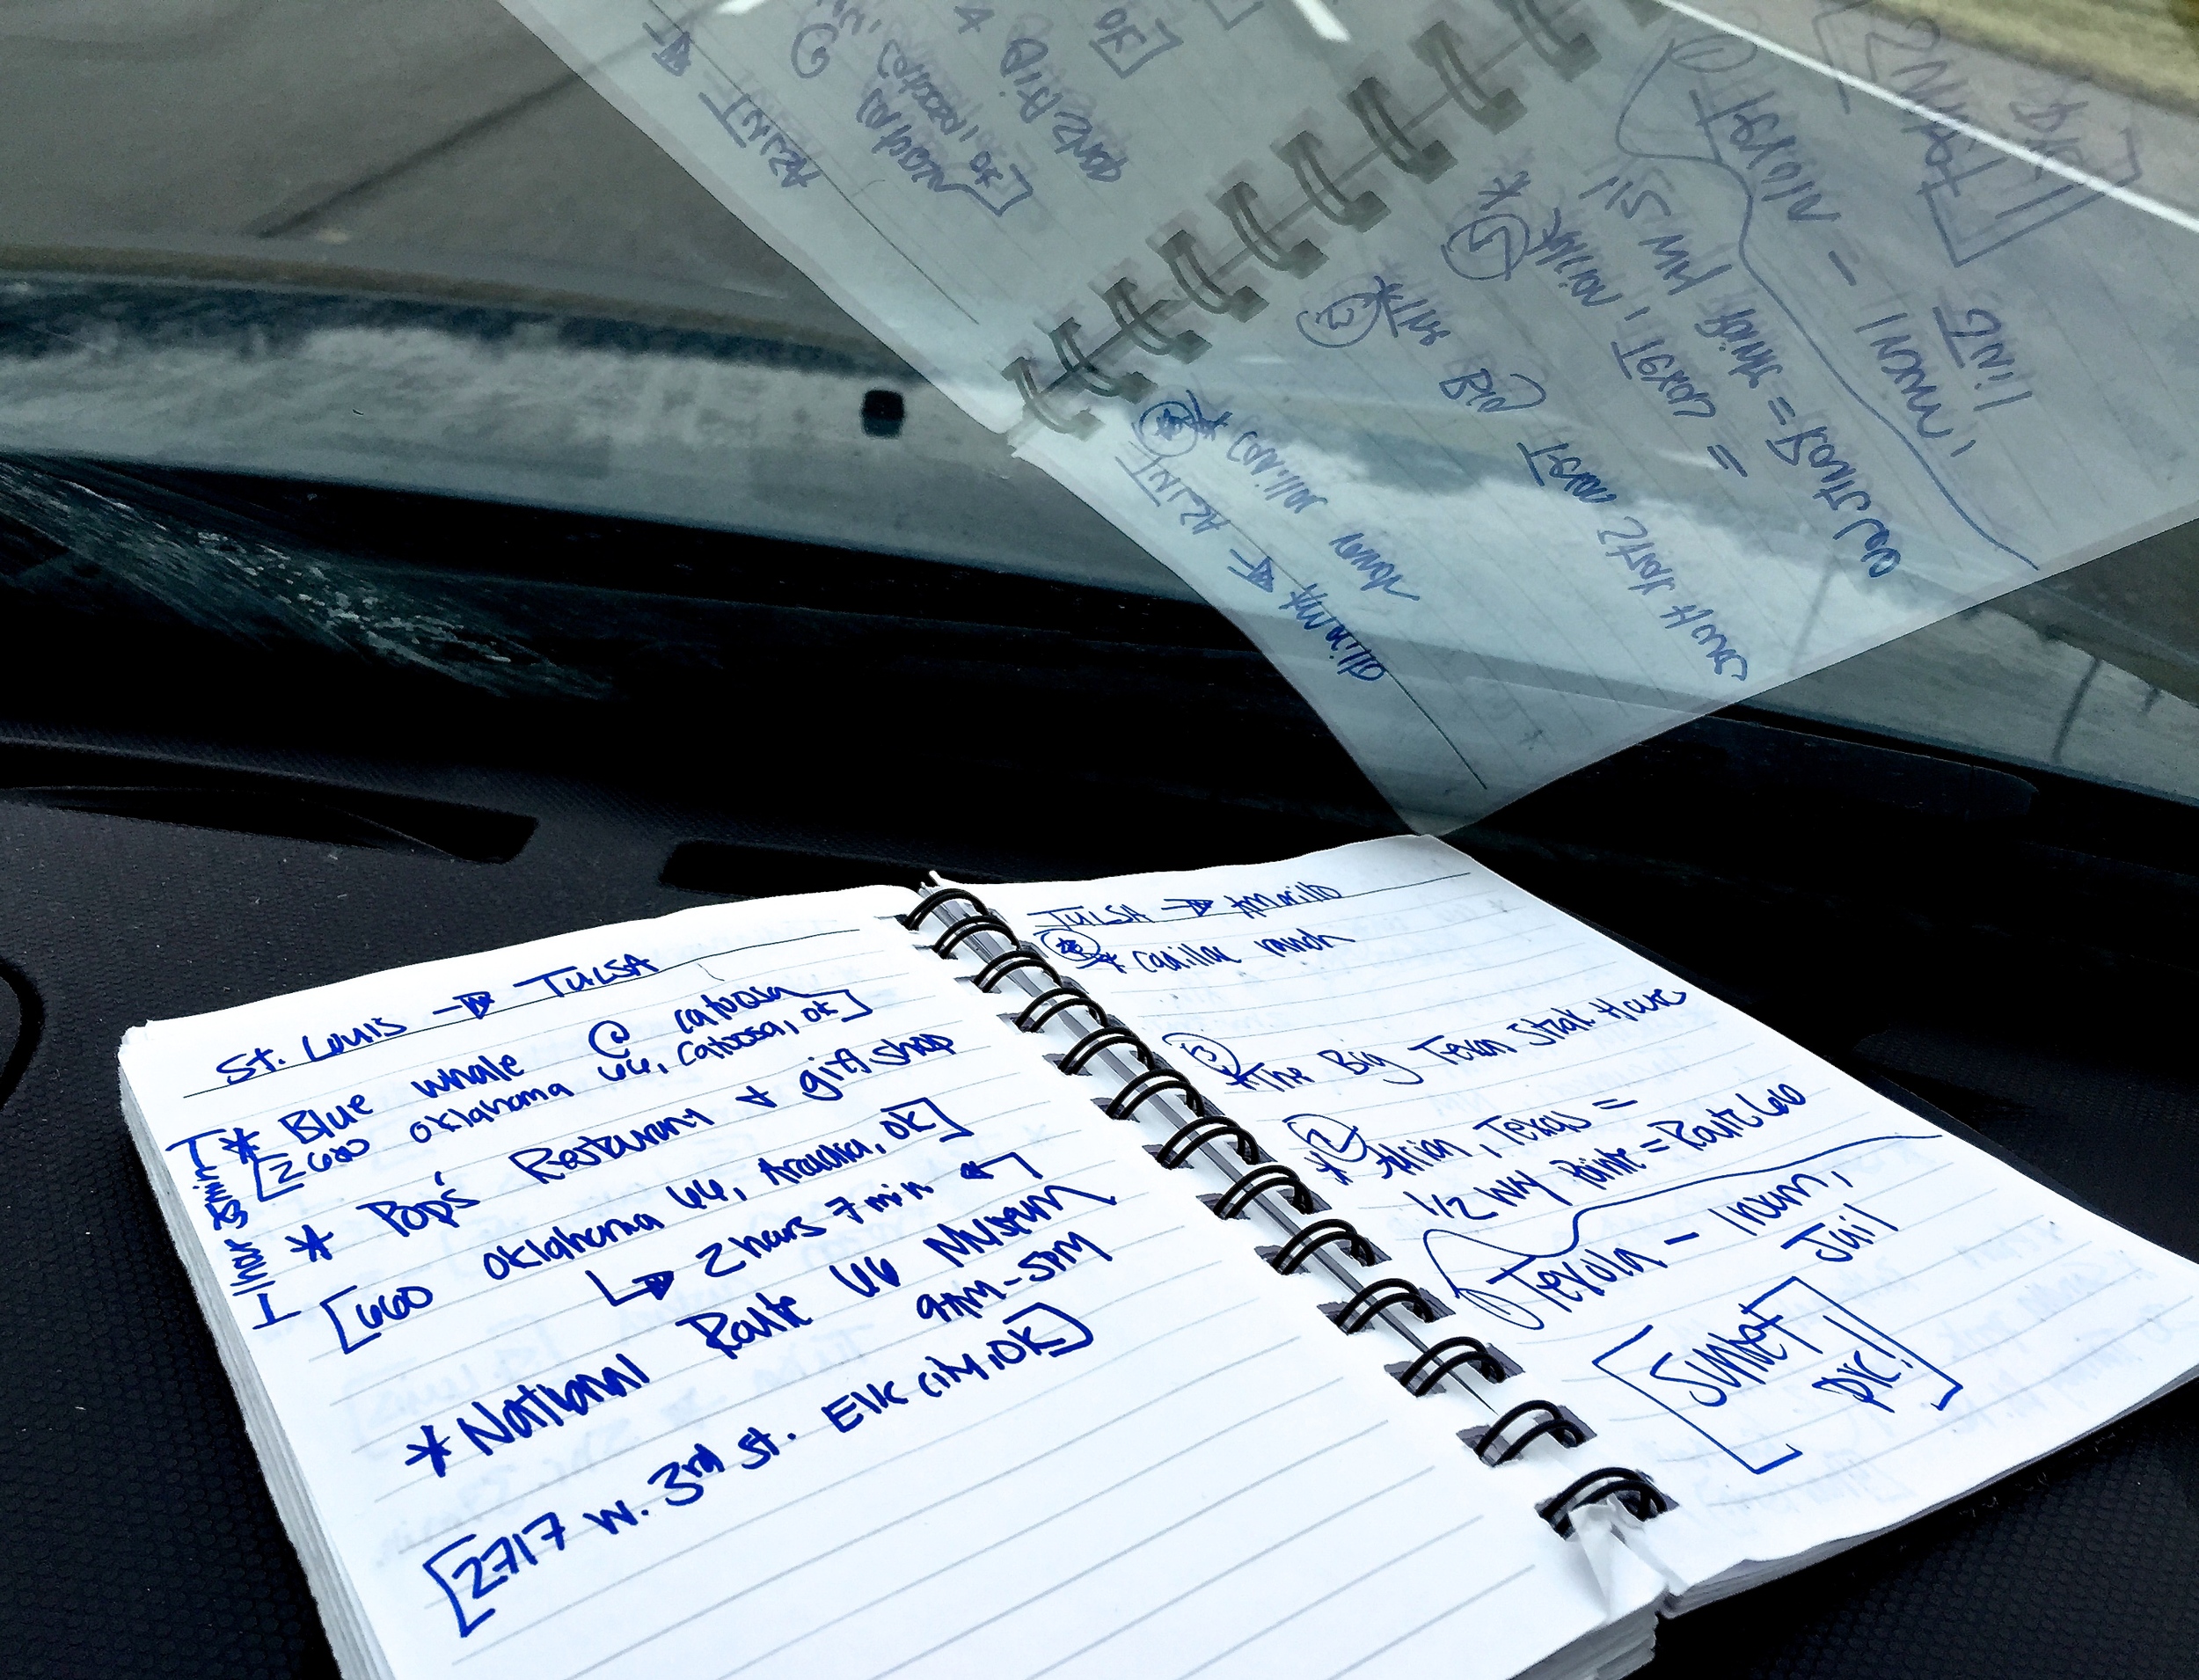 St. Louis → TULSA
* Blue whale @ catoosa
[2600 oklahoma 66, Catoosa, ok]
* Pop's Resturant & gift shop
[660 oklahoma 66, Arcadia, ok]
↳ 2 hours 7 min
* National Route 66 Museum
9AM-5PM
[2717 w. 3rd st. Elk city, OK]
1 hour 23 min
TULSA → Amarillo
* cadillac ranch
③
* The Big Texan Steak House
②
* Adrian, Texas =
1/2 WAY point = Route 66
① Texola - 1 room,
Jail
[Sunset
pic!]